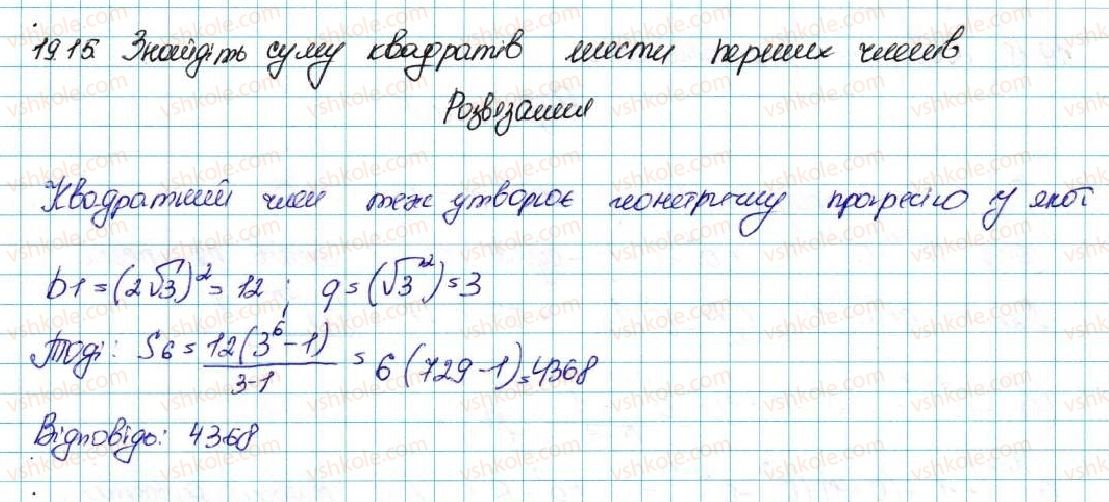 19.15 Знайдіть суму квадратів шести перших членів
Розвязання
Квадратний член теж утворює геометричну прогресію у якої
b1 = (2√3)² = 12 ; q = (√3²) = 3
Тоді: S6 = 12(3⁶-1)/3-1 = 6(729-1) = 4368
Відповідь: 4368